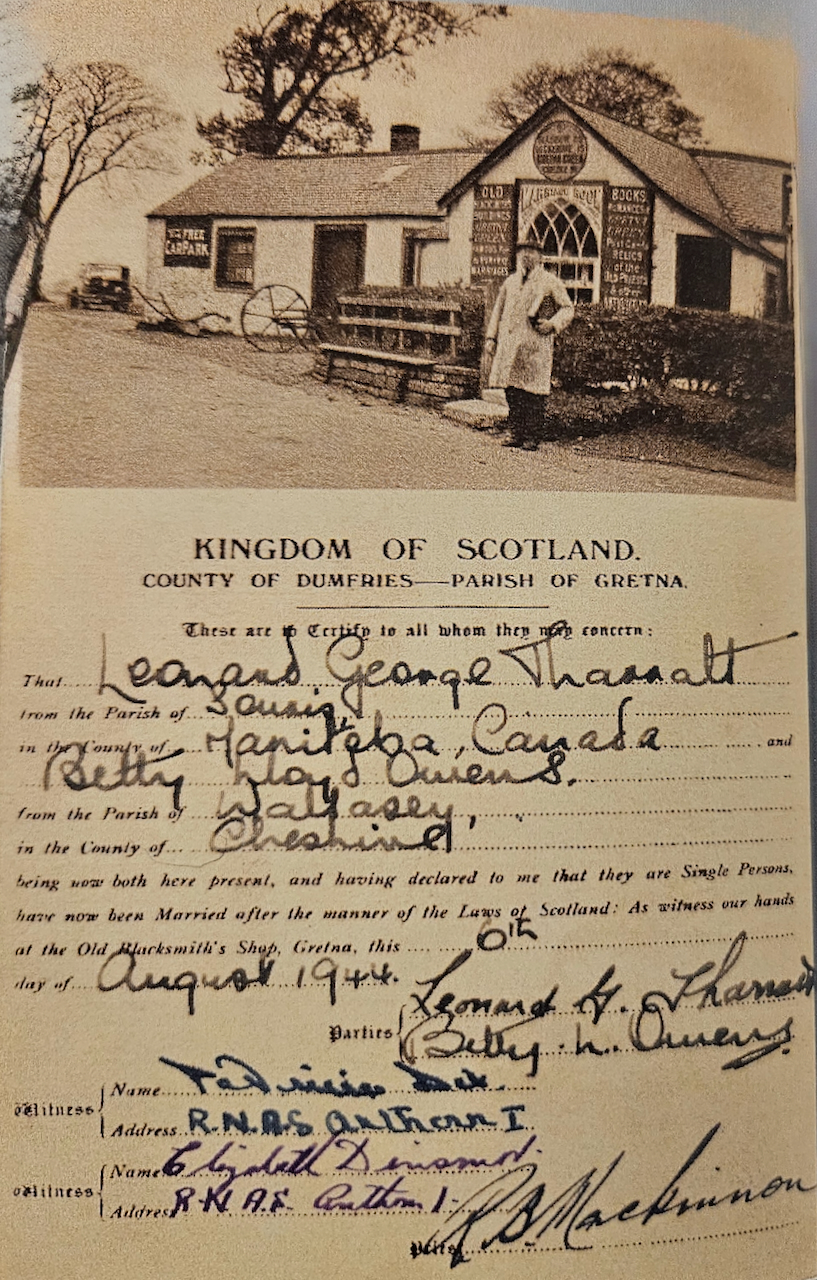 FREE
CARPARK
OLD
BOOKS
RELICS
of the
KINGDOM OF SCOTLAND.
COUNTY OF DUMFRIES—PARISH OF GRETNA.
These are to Certify to all whom they may concern:
That Leonard George Tharratt
from the Parish of Souris,
in the County of Manitoba, Canada and
Betty Lloyd Owens.
from the Parish of Wallasey,
in the County of Cheshire
being now both here present, and having declared to me that they are Single Persons,
have now been Married after the manner of the Laws of Scotland: As witness our hands
at the Old Blacksmith's Shop, Gretna, this 6th
day of August 1944.
Parties Leonard G. Tharratt
Betty L. Owens.
Witness
Name Patricia
Address R.N.A.S Anthorn I
Witness
Name Elizabeth Dinsmor.
Address R.N.A.S. Anthorn 1.
R B Mackinnon